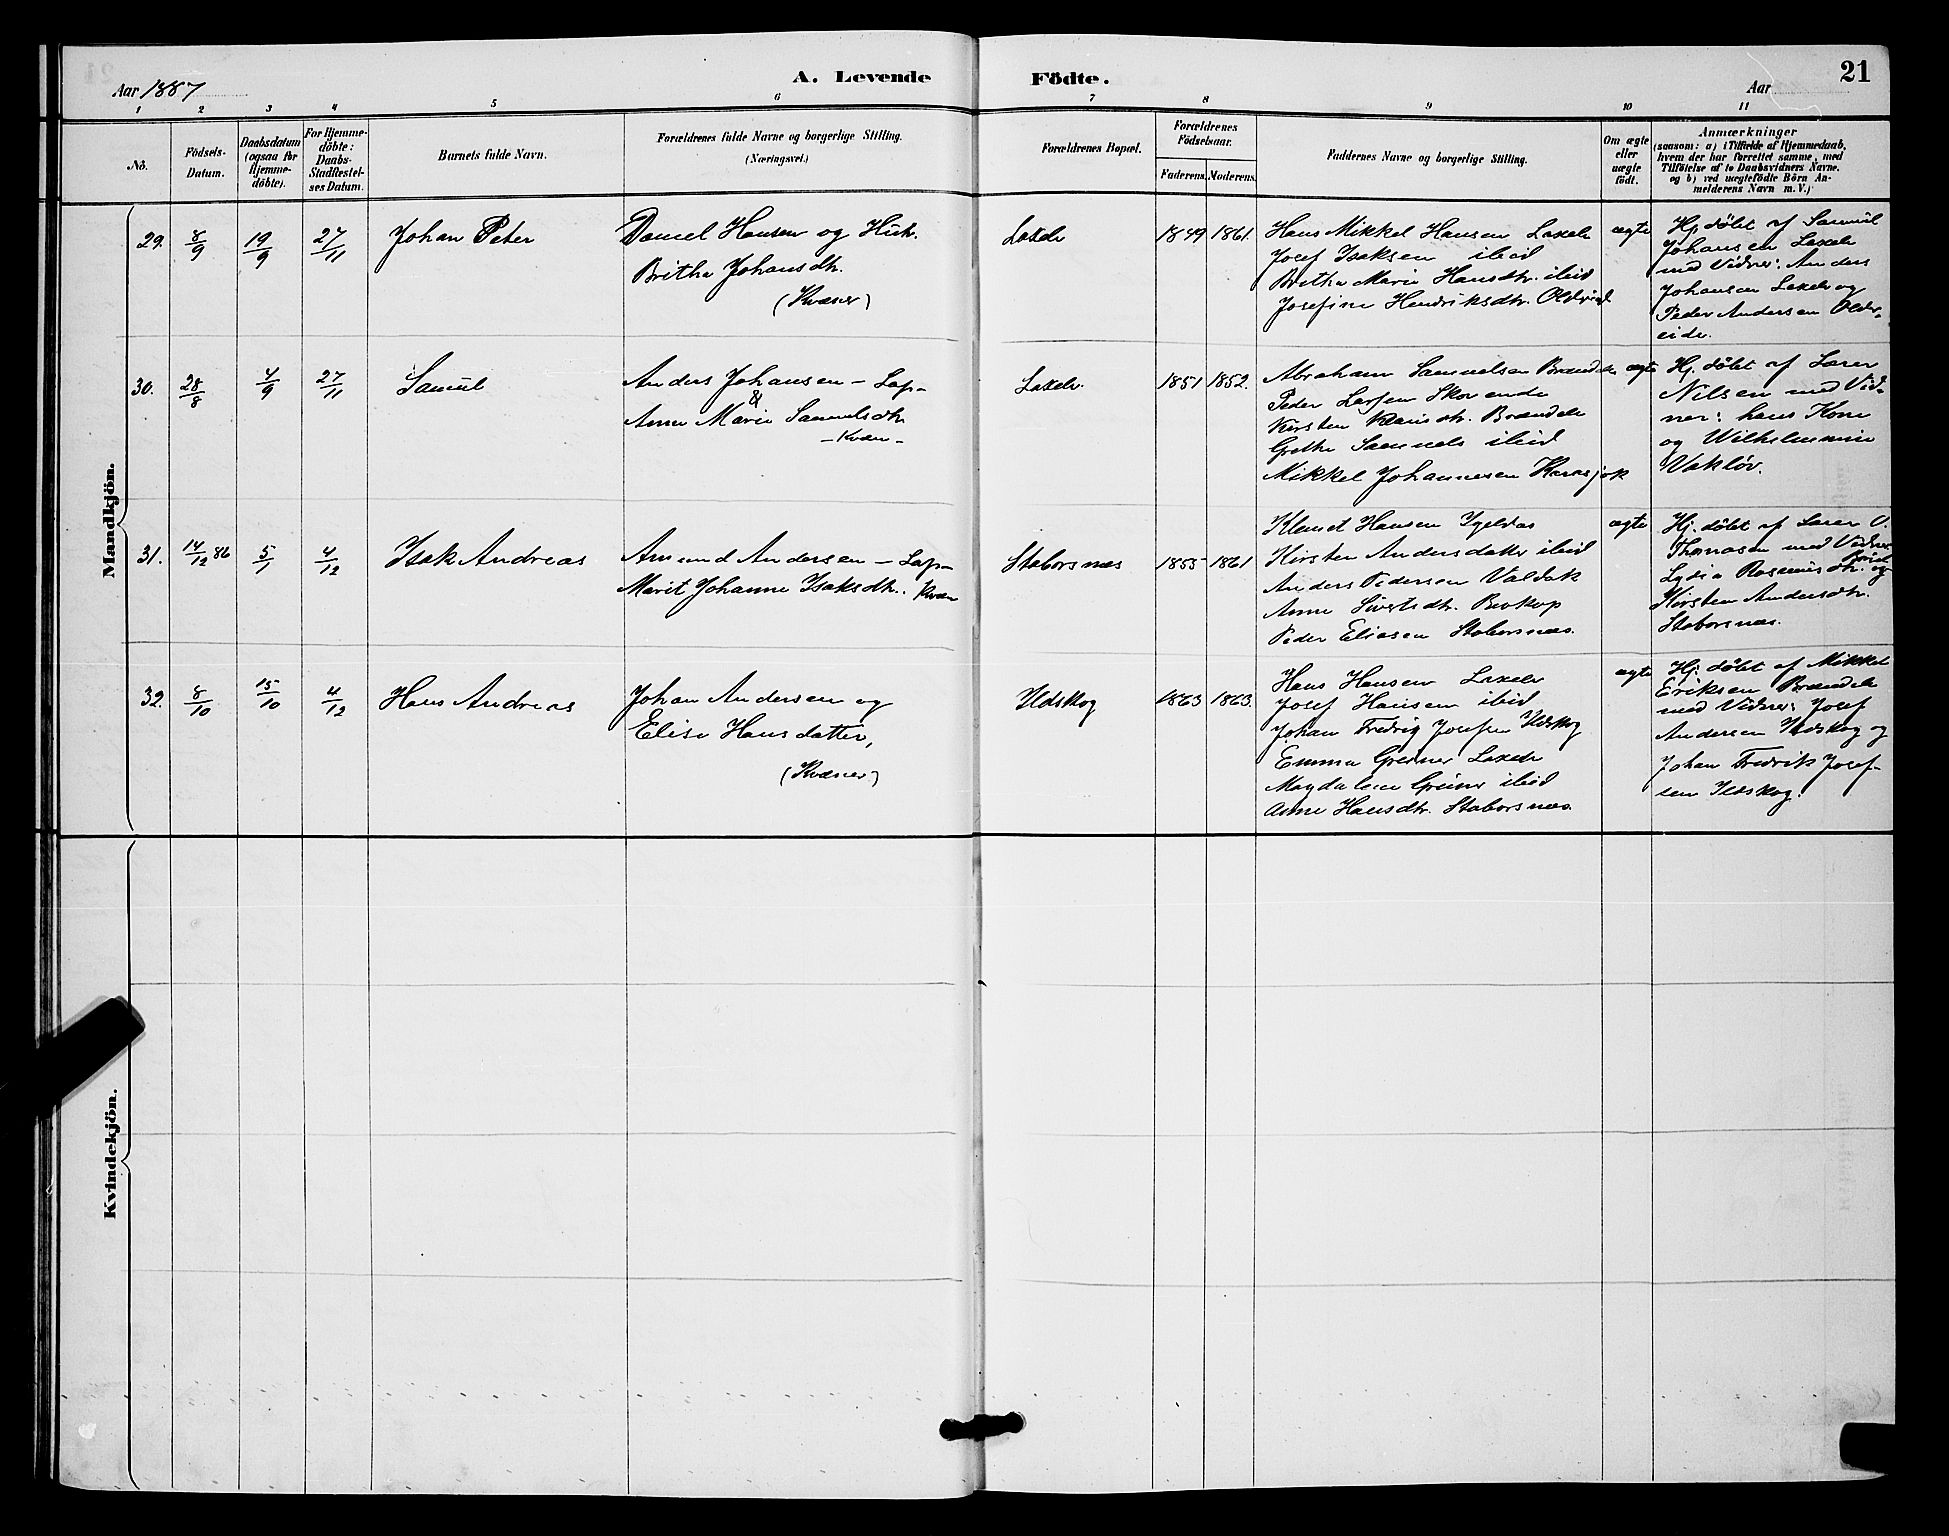 Aar 1887
A. Levende Födte.
Aar
21
1 2 3 4 5 6 7 8 9 10 11
No.
Födsels-
Datum.
Daabsdatum
(ogsaa for
Hjemme-
döbte).
For Hjemme-
döbte:
Daabs-
Stadfestel-
ses Datum.
Barnets fulde Navn.
Forældrenes fulde Navne og borgerlige Stilling.
(Næringsvei.)
Forældrenes Bopæl.
Forældrenes
Födselsaar.
Faderens. Moderens.
Faddernes Navne og borgerlige Stilling.
Om ægte
eller
uægte
födt.
Anmærkninger
(saasom: a) i Tilfælde af Hjemmedaab,
hvem der har forrettet samme, med
Tilföielse af to Daabsvidners Navne.
og b) ved uægtefödte Börn An-
melderens Navn m. V.)
Mandkjön.
29. 8/9 19/9 27/11
Johan Peter
Daniel Hansen og Hustr.
Britha Johansdtr.
(Kvæner)
Laxelv
1849 1861.
Hans Mikkel Hansen Laxelv
Josef Isaksen ibid
Britha Marie Hansdtr. ibid
Josefine Hendriksdtr.
ægte
Hj. döbt af Samuel
Johansen Laxelv
med Vidner: Anders
Johansen Laxelv og
Peder Andersen Older-
eide.
30. 28/8 4/9 27/11
Samuel
Anders Johansen – Lap –
&
Anne Marie Samuelsdtr.
– Kvæn –
Laxelv.
1851 1852.
Abraham Samuelsen Brændelv
Peder Larsen
Kirsten Brændelv
Grethe Samuels ibid
Mikkel Johannesen Karasjok
ægte
Hj. döbt af Lærer
Nilsen med Vid-
ner: hans Kone
og Wilhelmine
31. 14/12 86 5/1 4/12
Isak Andreas
Amund Andersen – Lap –
Marit Johanne Isaksdtr. Kvæn
Staborsnæs
1855 1861
Klemet Hansen Igeldas
Kirsten Andersdatter ibid
Anders Pedersen Valdak
Anne Sivertsdtr.
Peder Eliasen Staborsnæs.
ægte
Hj. döbt af Lærer O.
Thomasen med Vidner
Lydia Rasmusdtr. og
Kirsten Andersdtr.
Staborsnæs.
32. 8/10 15/10 4/12
Hans Andreas
Johan Andersen og
Elise Hansdatter,
(Kvæner)
Ildskog
1863 1863.
Hans Hansen Laxelv
Josef Hansen ibid
Johan Fredrig Josefsen Ildskog
Emma Greiner Laxelv
Magdalene Greiner ibid
Anne Hansdtr. Staborsnæs.
ægte
Hj. döbt af Mikkel
Eriksen Brændelv
med Vidner: Josef
Andersen Ildskog og
Johan Fredrik Josef-
sen Ildskog.
Kvindekjön.